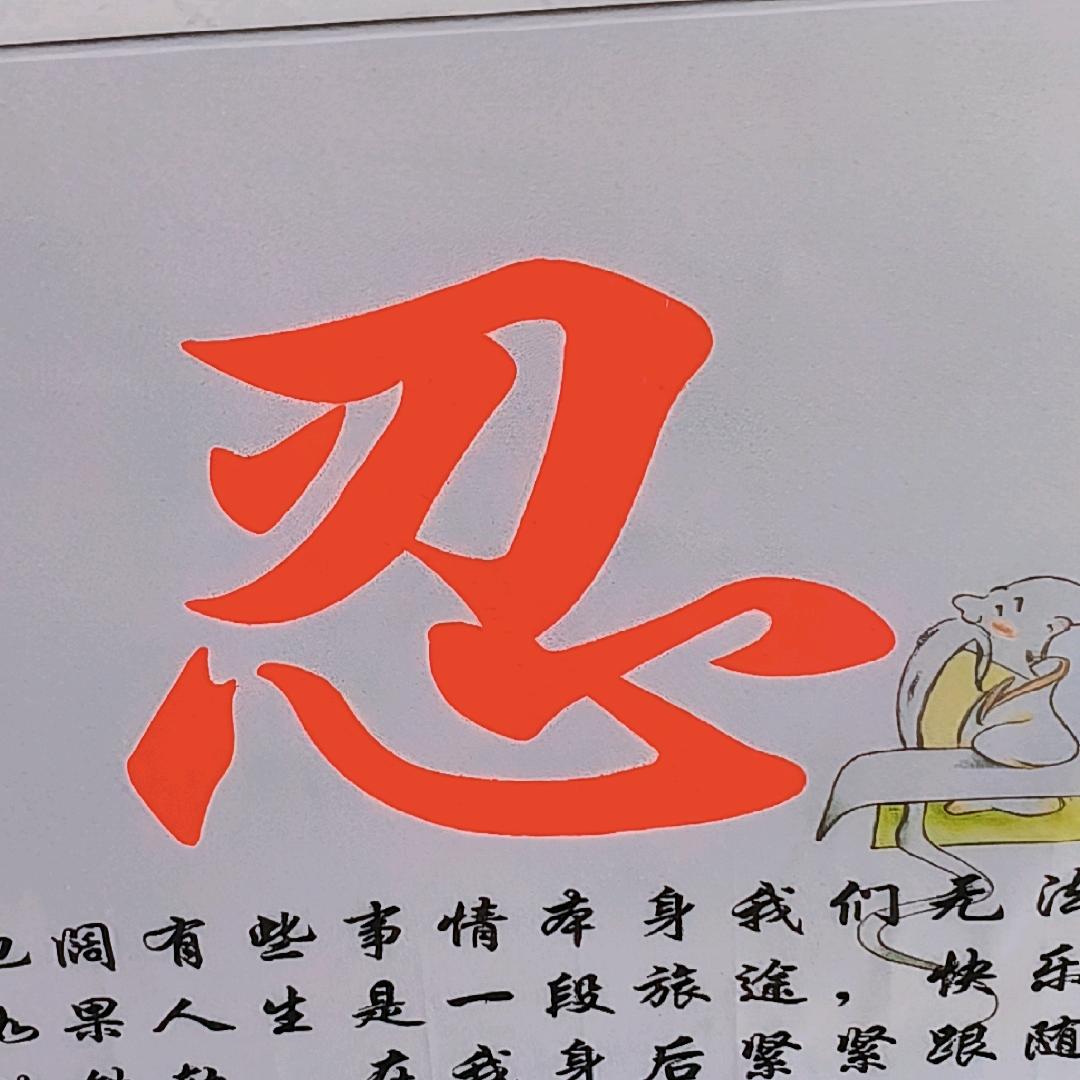 忍
阔有些事情本身我们无法
如果人生是一段旅途，快乐
在我身后紧紧跟随